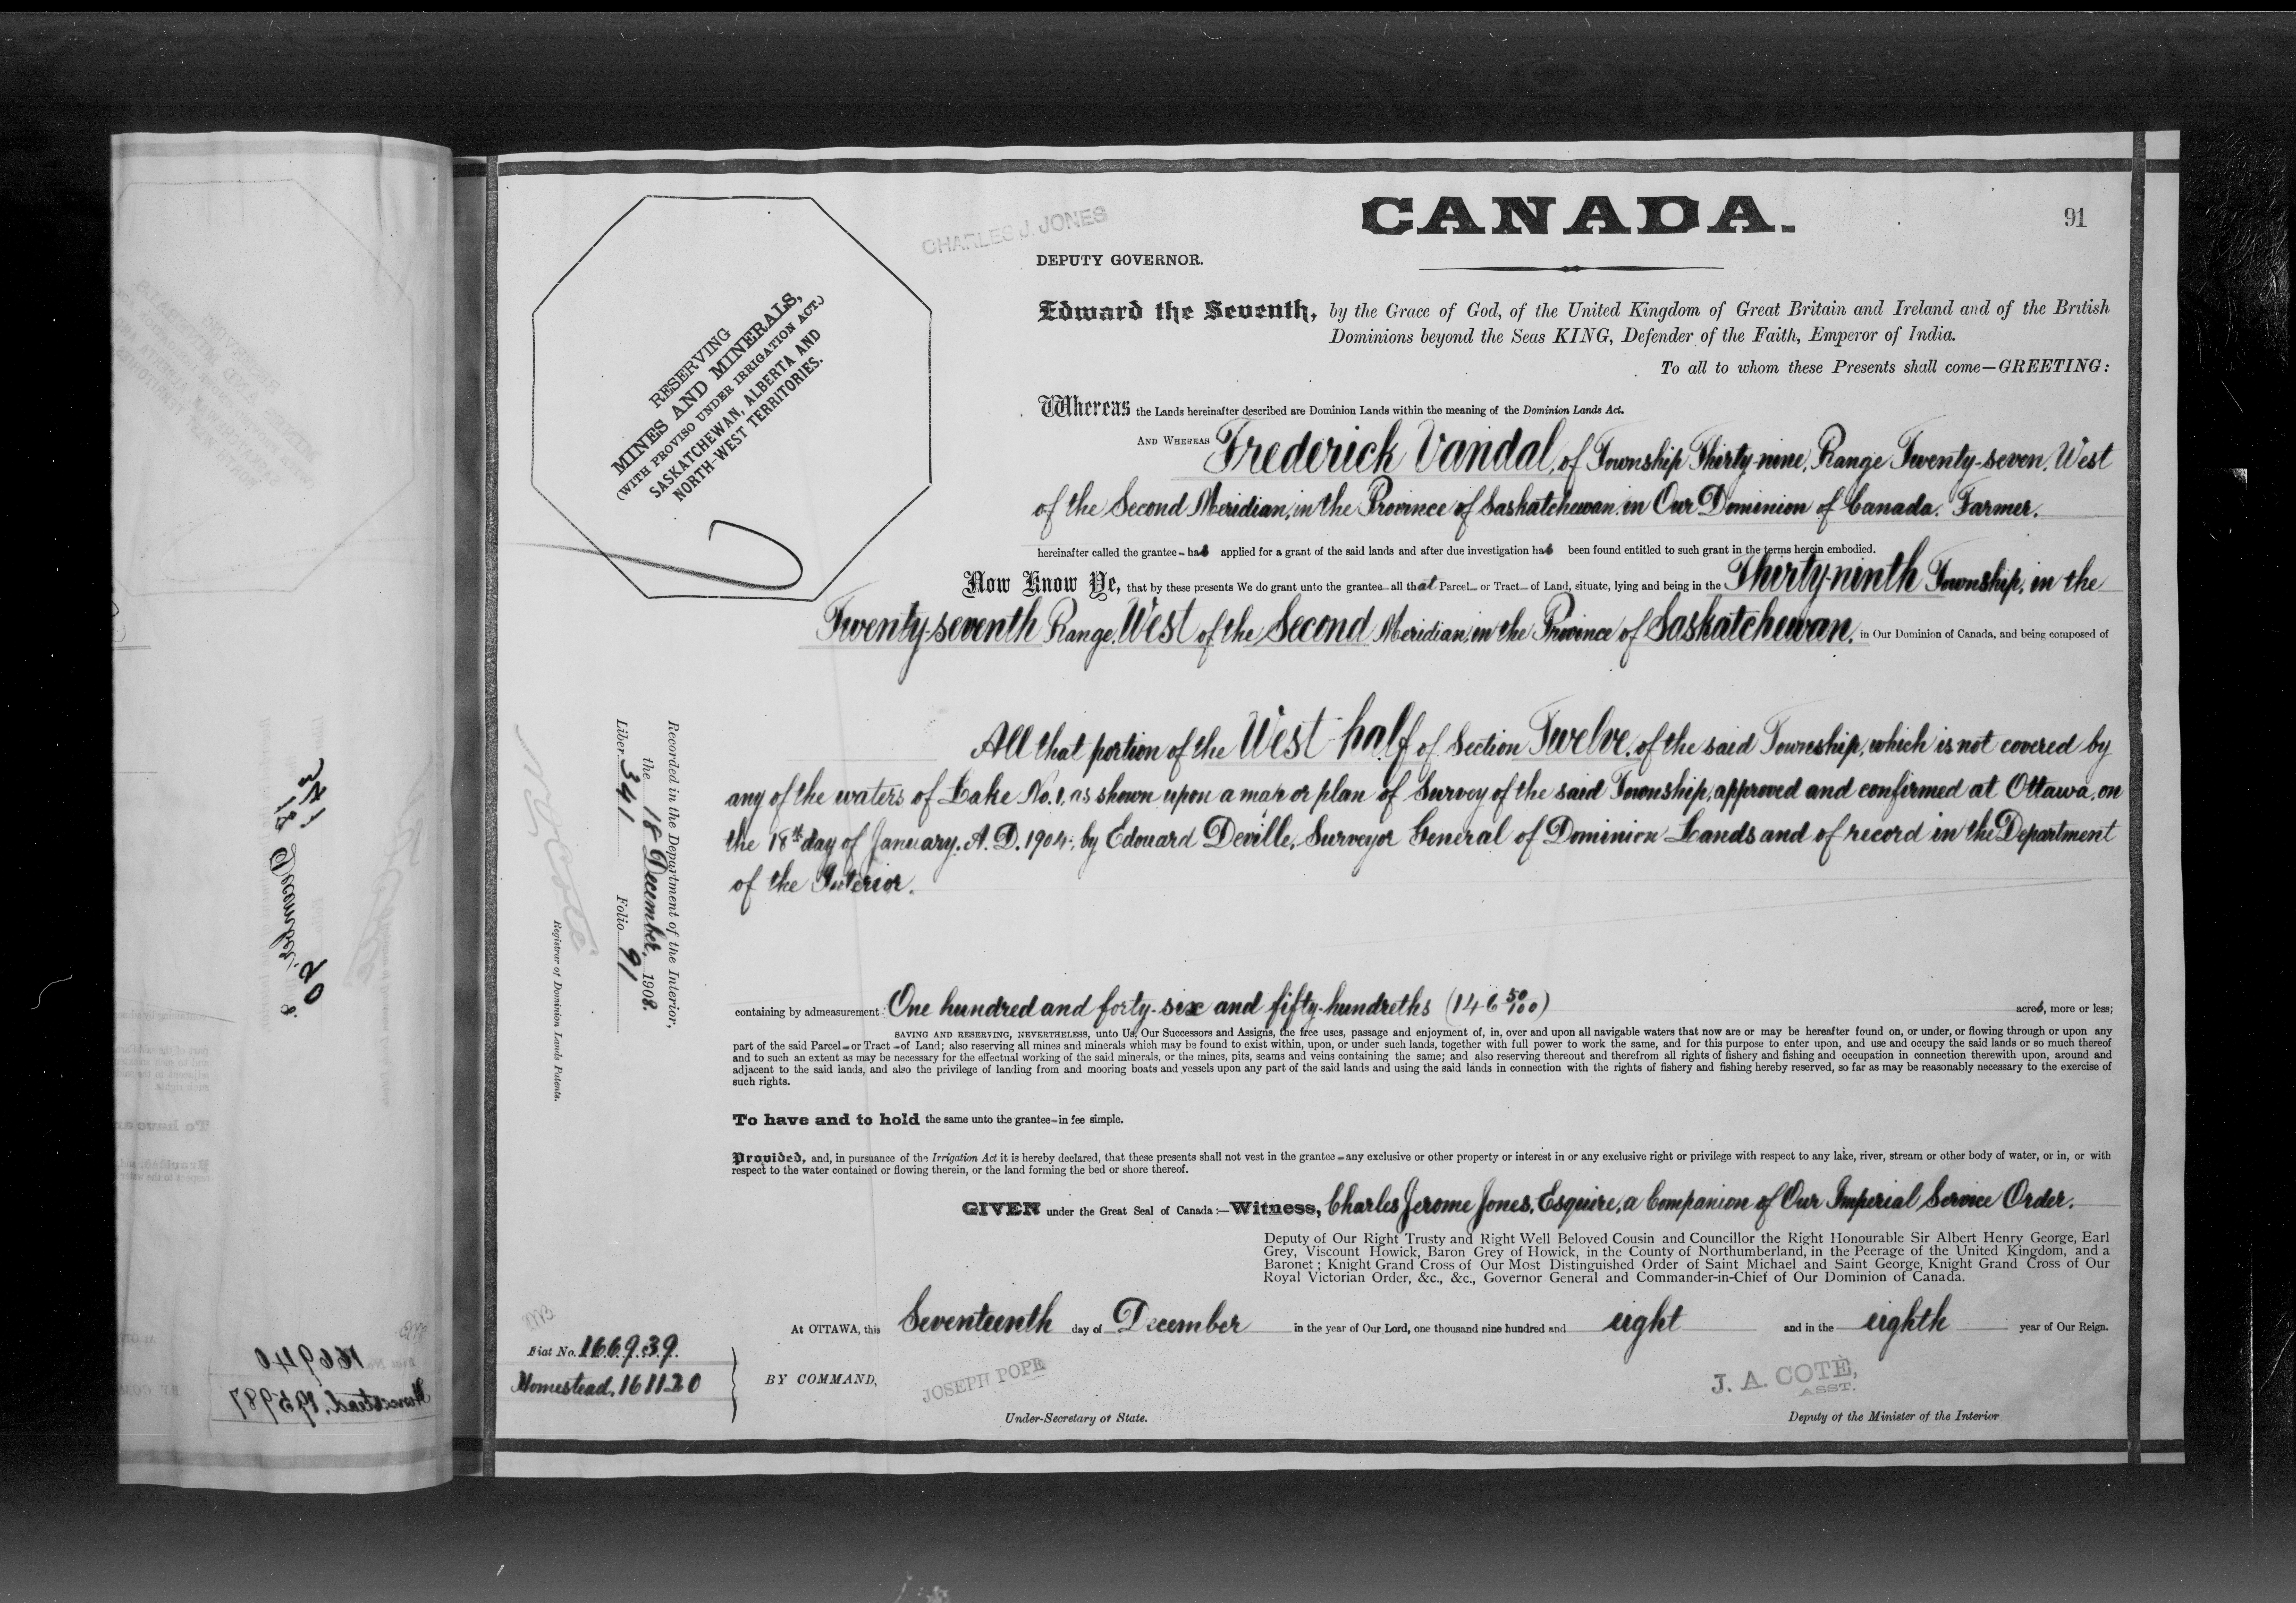 CANADA.
91
CHARLES J. JONES
DEPUTY GOVERNOR.
RESERVING
MINES AND MINERALS,
(WITH PROVISO UNDER IRRIGATION ACT.)
SASKATCHEWAN, ALBERTA AND
NORTH-WEST TERRITORIES.
Edward the Seventh, by the Grace of God, of the United Kingdom of Great Britain and Ireland and of the British
Dominions beyond the Seas KING, Defender of the Faith, Emperor of India.
To all to whom these Presents shall come—GREETING:
Whereas the Lands hereinafter described are Dominion Lands within the meaning of the Dominion Lands Act.
AND WHEREAS Frederick Vandal, of Township Thirty-nine, Range Twenty-seven, West
of the Second Meridian, in the Province of Saskatchewan in Our Dominion of Canada. Farmer.
hereinafter called the grantee – has applied for a grant of the said lands and after due investigation has been found entitled to such grant in the terms herein embodied.
Now Know Ye, that by these presents We do grant unto the grantee – all that Parcel – or Tract – of Land, situate, lying and being in the Thirty-ninth Township, in the
Twenty-seventh Range, West of the Second Meridian, in the Province of Saskatchewan, in Our Dominion of Canada, and being composed of
All that portion of the West half of Section Twelve, of the said Township, which is not covered by
any of the waters of Lake No. 1, as shown upon a map or plan of Survey of the said Township, approved and confirmed at Ottawa, on
the 18th day of January, A. D. 1904, by Edouard Deville, Surveyor General of Dominion Lands and of record in the Department
of the Interior.
containing by admeasurement: One hundred and forty-six and fifty-hundreths (146 50/100) acres, more or less;
SAVING AND RESERVING, NEVERTHELESS, unto Us, Our Successors and Assigns, the free uses, passage and enjoyment of, in, over and upon all navigable waters that now are or may be hereafter found on, or under, or flowing through or upon any
part of the said Parcel – or Tract – of Land; also reserving all mines and minerals which may be found to exist within, upon, or under such lands, together with full power to work the same, and for this purpose to enter upon, and use and occupy the said lands or so much thereof
and to such an extent as may be necessary for the effectual working of the said minerals, or the mines, pits, seams and veins containing the same; and also reserving thereout and therefrom all rights of fishery and fishing and occupation in connection therewith upon, around and
adjacent to the said lands, and also the privilege of landing from and mooring boats and vessels upon any part of the said lands and using the said lands in connection with the rights of fishery and fishing hereby reserved, so far as may be reasonably necessary to the exercise of
such rights.
To have and to hold the same unto the grantee – in fee simple.
Provided, and, in pursuance of the Irrigation Act it is hereby declared, that these presents shall not vest in the grantee – any exclusive or other property or interest in or any exclusive right or privilege with respect to any lake, river, stream or other body of water, or in, or with
respect to the water contained or flowing therein, or the land forming the bed or shore thereof.
GIVEN under the Great Seal of Canada :— Witness, Charles Jerome Jones, Esquire, a Companion of Our Imperial Service Order.
Deputy of Our Right Trusty and Right Well Beloved Cousin and Councillor the Right Honourable Sir Albert Henry George, Earl
Grey, Viscount Howick, Baron Grey of Howick, in the County of Northumberland, in the Peerage of the United Kingdom, and a
Baronet ; Knight Grand Cross of Our Most Distinguished Order of Saint Michael and Saint George, Knight Grand Cross of Our
Royal Victorian Order, &c., &c., Governor General and Commander-in-Chief of Our Dominion of Canada.
At OTTAWA, this Seventeenth day of December in the year of Our Lord, one thousand nine hundred and eight and in the eighth year of Our Reign.
BY COMMAND,
JOSEPH POPE
Under-Secretary of State.
J. A. COTÉ,
ASST.
Deputy of the Minister of the Interior
Fiat No. 166939.
Homestead, 161120
Recorded in the Department of the Interior,
the 18 December, 1908.
Liber 341 Folio 91
N. O. Coté
Registrar of Dominion Lands Patents.
166940
Homestead, 195987